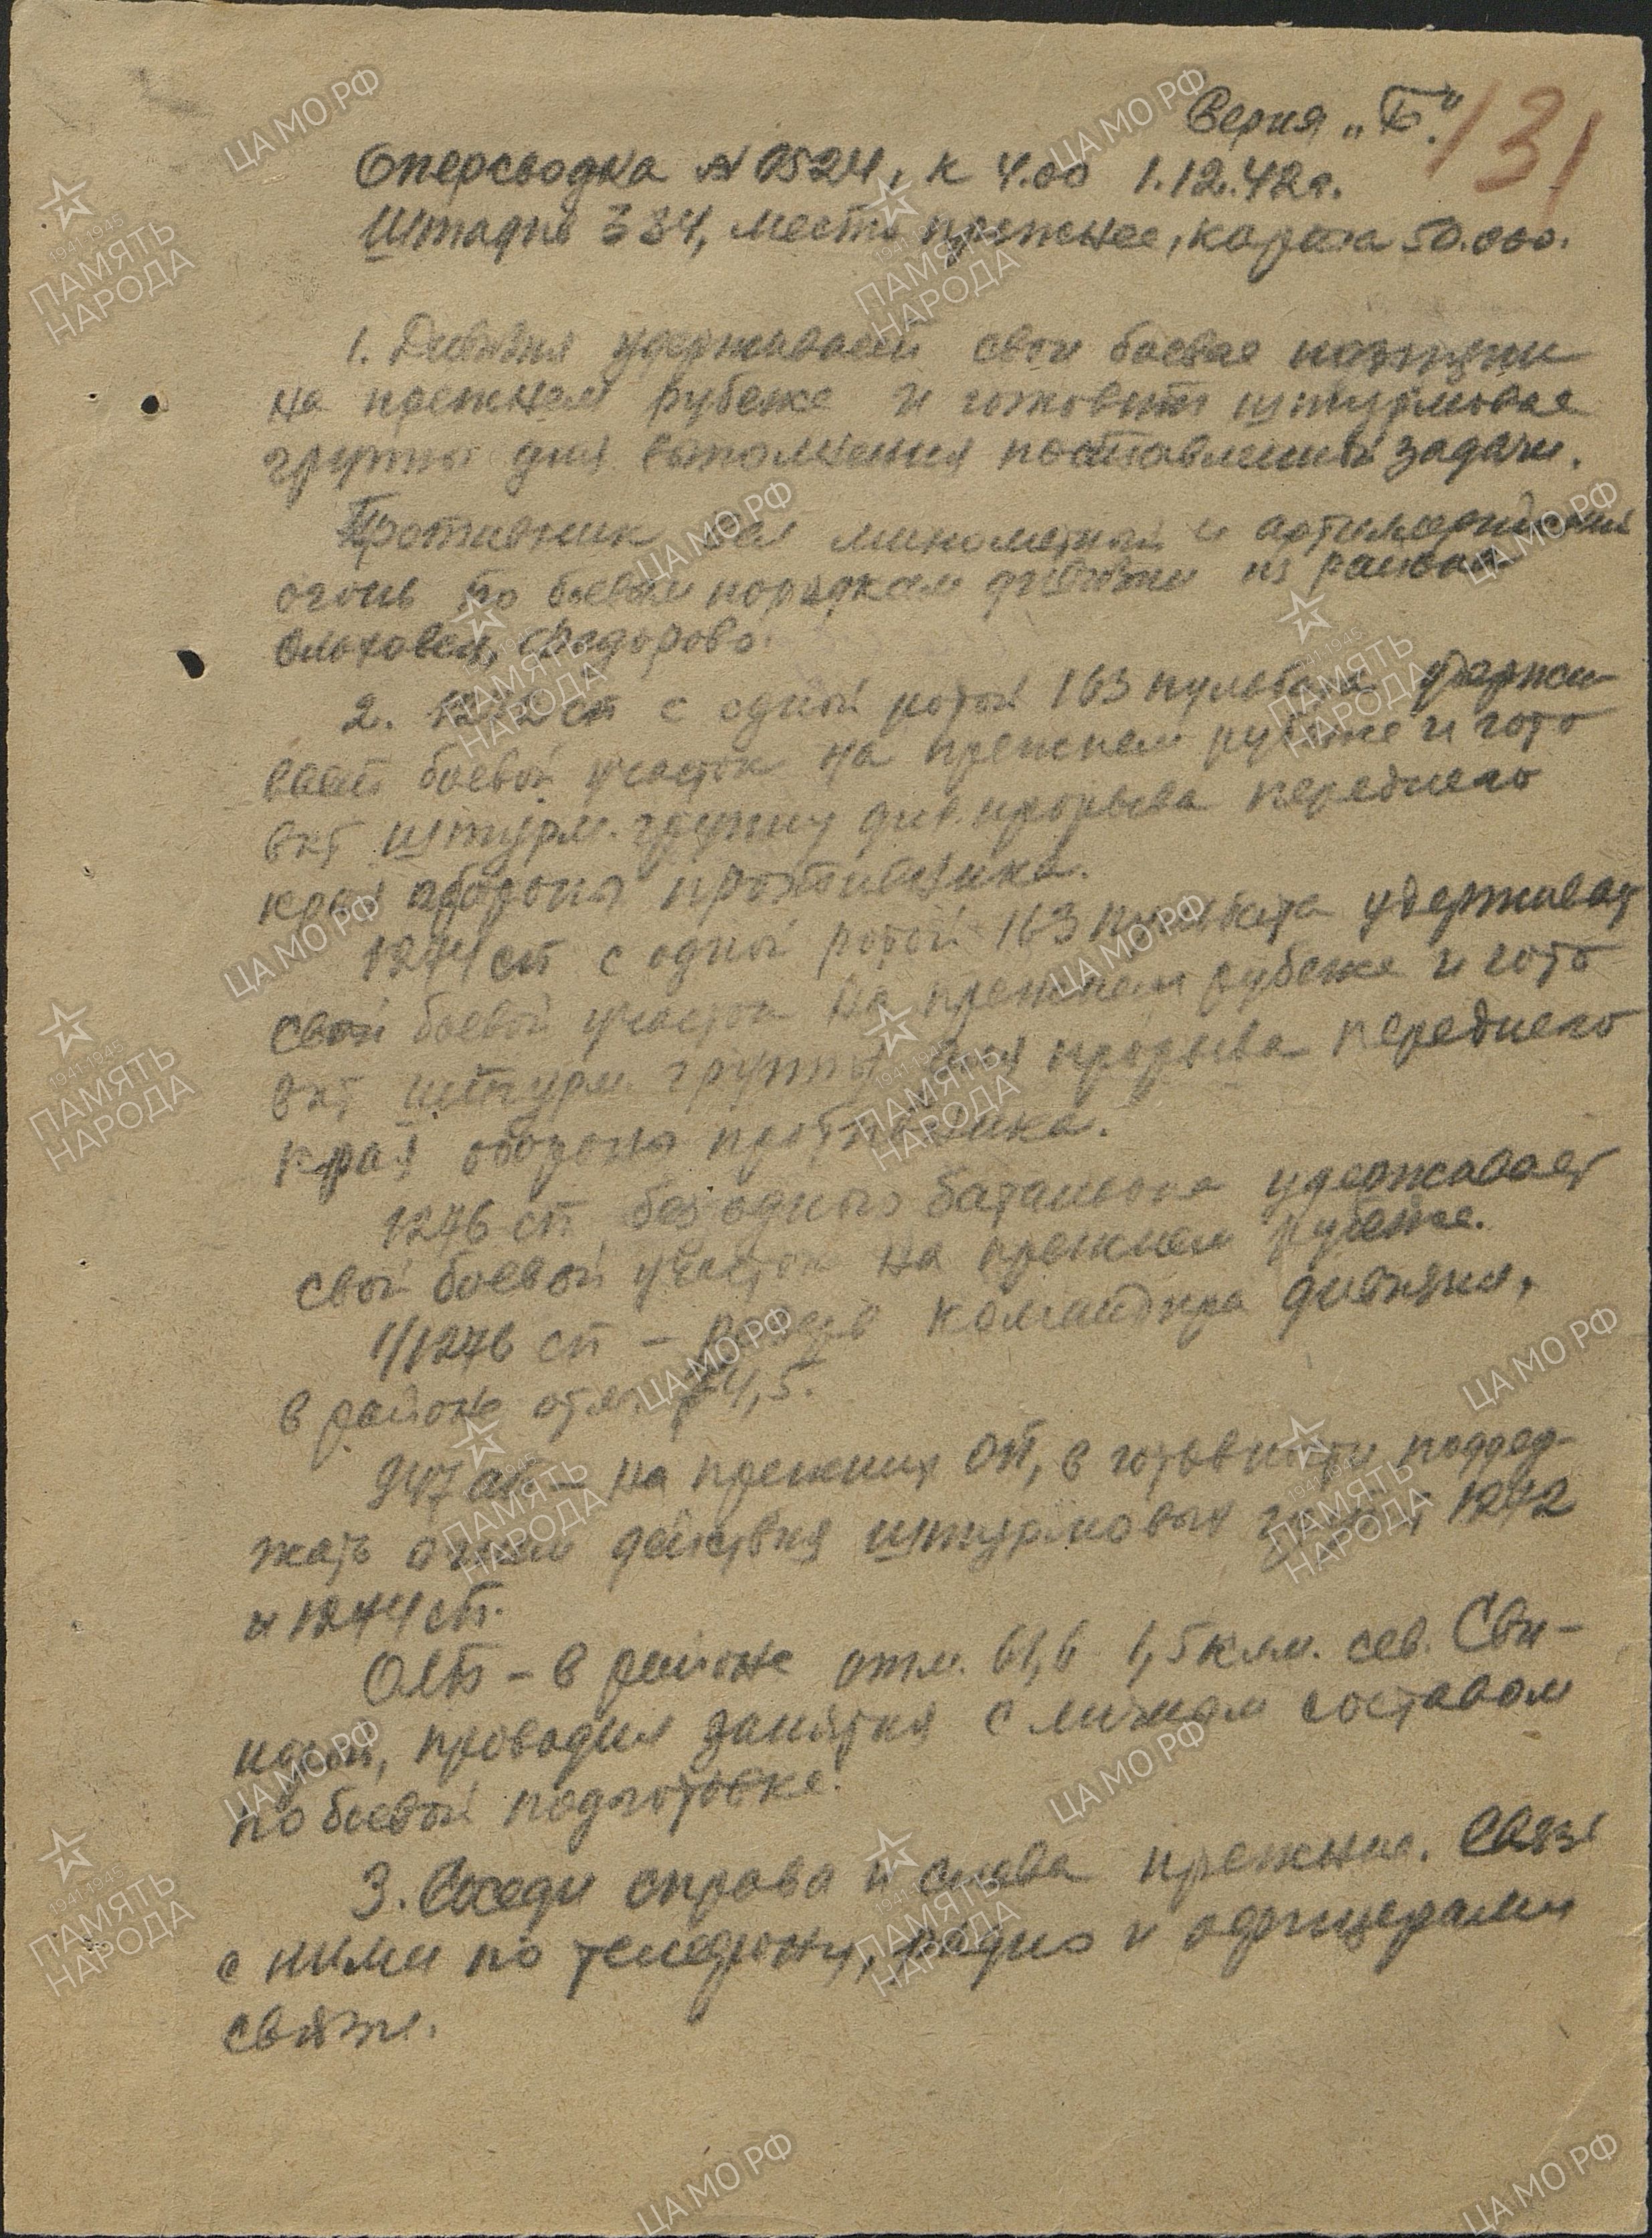 Серия „Б".
131
Оперсводка № 0524, к 4.00 1.12.42г.
Штадив 384, место прежнее, карта 50.000.
1. Дивизия удерживает свои боевые позиции
на прежнем рубеже и готовит штурмовые
группы для выполнения поставленной задачи.
Противник вел минометный и артиллерийский
огонь по боевым порядкам дивизии из района
Ольховец, Федорово.
2. 1272 сп с одной ротой 163 пульбата удержи-
вает боевой участок на прежнем рубеже и гото
вит штурм. группу для прорыва переднего
края обороны противника.
1274 сп с одной ротой 163 пульбата удерживает
свой боевой участок на прежнем рубеже и гото
вит штурм. группу для прорыва переднего
края обороны противника.
1276 сп без одного батальона удерживает
свой боевой участок на прежнем рубеже.
1/1276 сп – резерв командира дивизии,
в районе отм. 74,5.
947 ап – на прежних ОП, в готовности поддер-
жать огнем действия штурмовых групп 1272
и 1274 сп.
в районе отм. 61,6 1,5 клм. сев. Сви-
проводил занятия с личным составом
по боевой подготовке.
3. Соседи справа и слева прежние. Связь
с ними по телефону, радио и офицерами
связи.